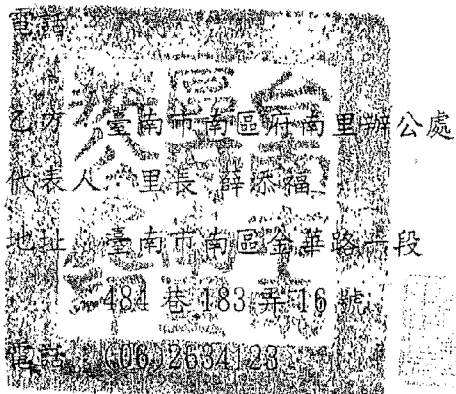 電話
乙方：臺南市南區府南里辦公處
代表人：里長 薛添福
地址：臺南市南區金華路一段
484 巷 183 弄 16 號
電話：(06)2634123